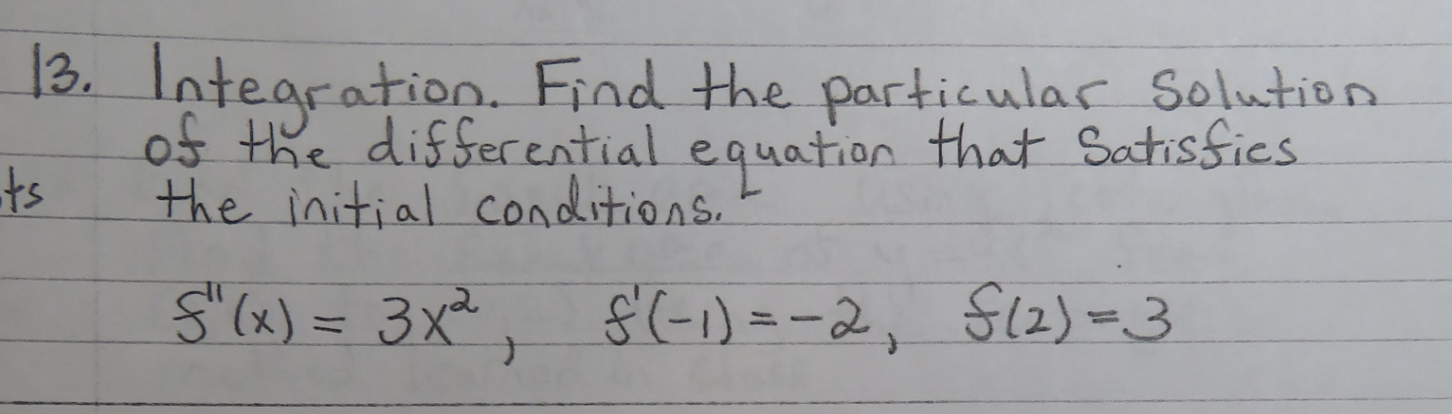 13. Integration. Find the particular solution
of the differential equation that satisfies
ts the initial conditions.
f"(x) = 3x², f'(-1) = -2, f(2) = 3